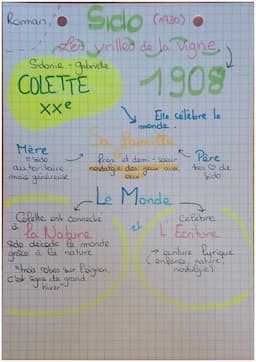 Roman, Sido (1930)
Les vrilles de la Vigne
Sidonie - gabrielle
COLETTE
XXe
1908
Elle célèbre le
monde.
Sa famille
Mère
= Sido
autoritaire
mais généreuse
frère et demi-soeur
nostalgie des jeux avec
eux
Père
très
de
Sido
Le Monde
Colette est connecté
à
la Nature
Sido décode le monde
grâce à la nature
"trois robes sur l'oignon,
c'est signe de grand
hiver"
et
Célèbre
L'Écriture
→ écriture lyrique
(enfance, nature,
nostalgie)